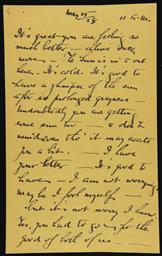 May 23
'28
11 A.M.
It's great you are feeling so
much better - alive once
more - The Sun is out
here. It's cold. It's good to
have a glimpse of the sun
after so prolonged grayness -
Undoubtedly you are getting
some sun too
it may excite
you a bit. - I have
your letter - It's good to
have - I am not worrying.
maybe I fool myself -
but it's not worry I know
Yes, you had to go - for the
good of both of us -